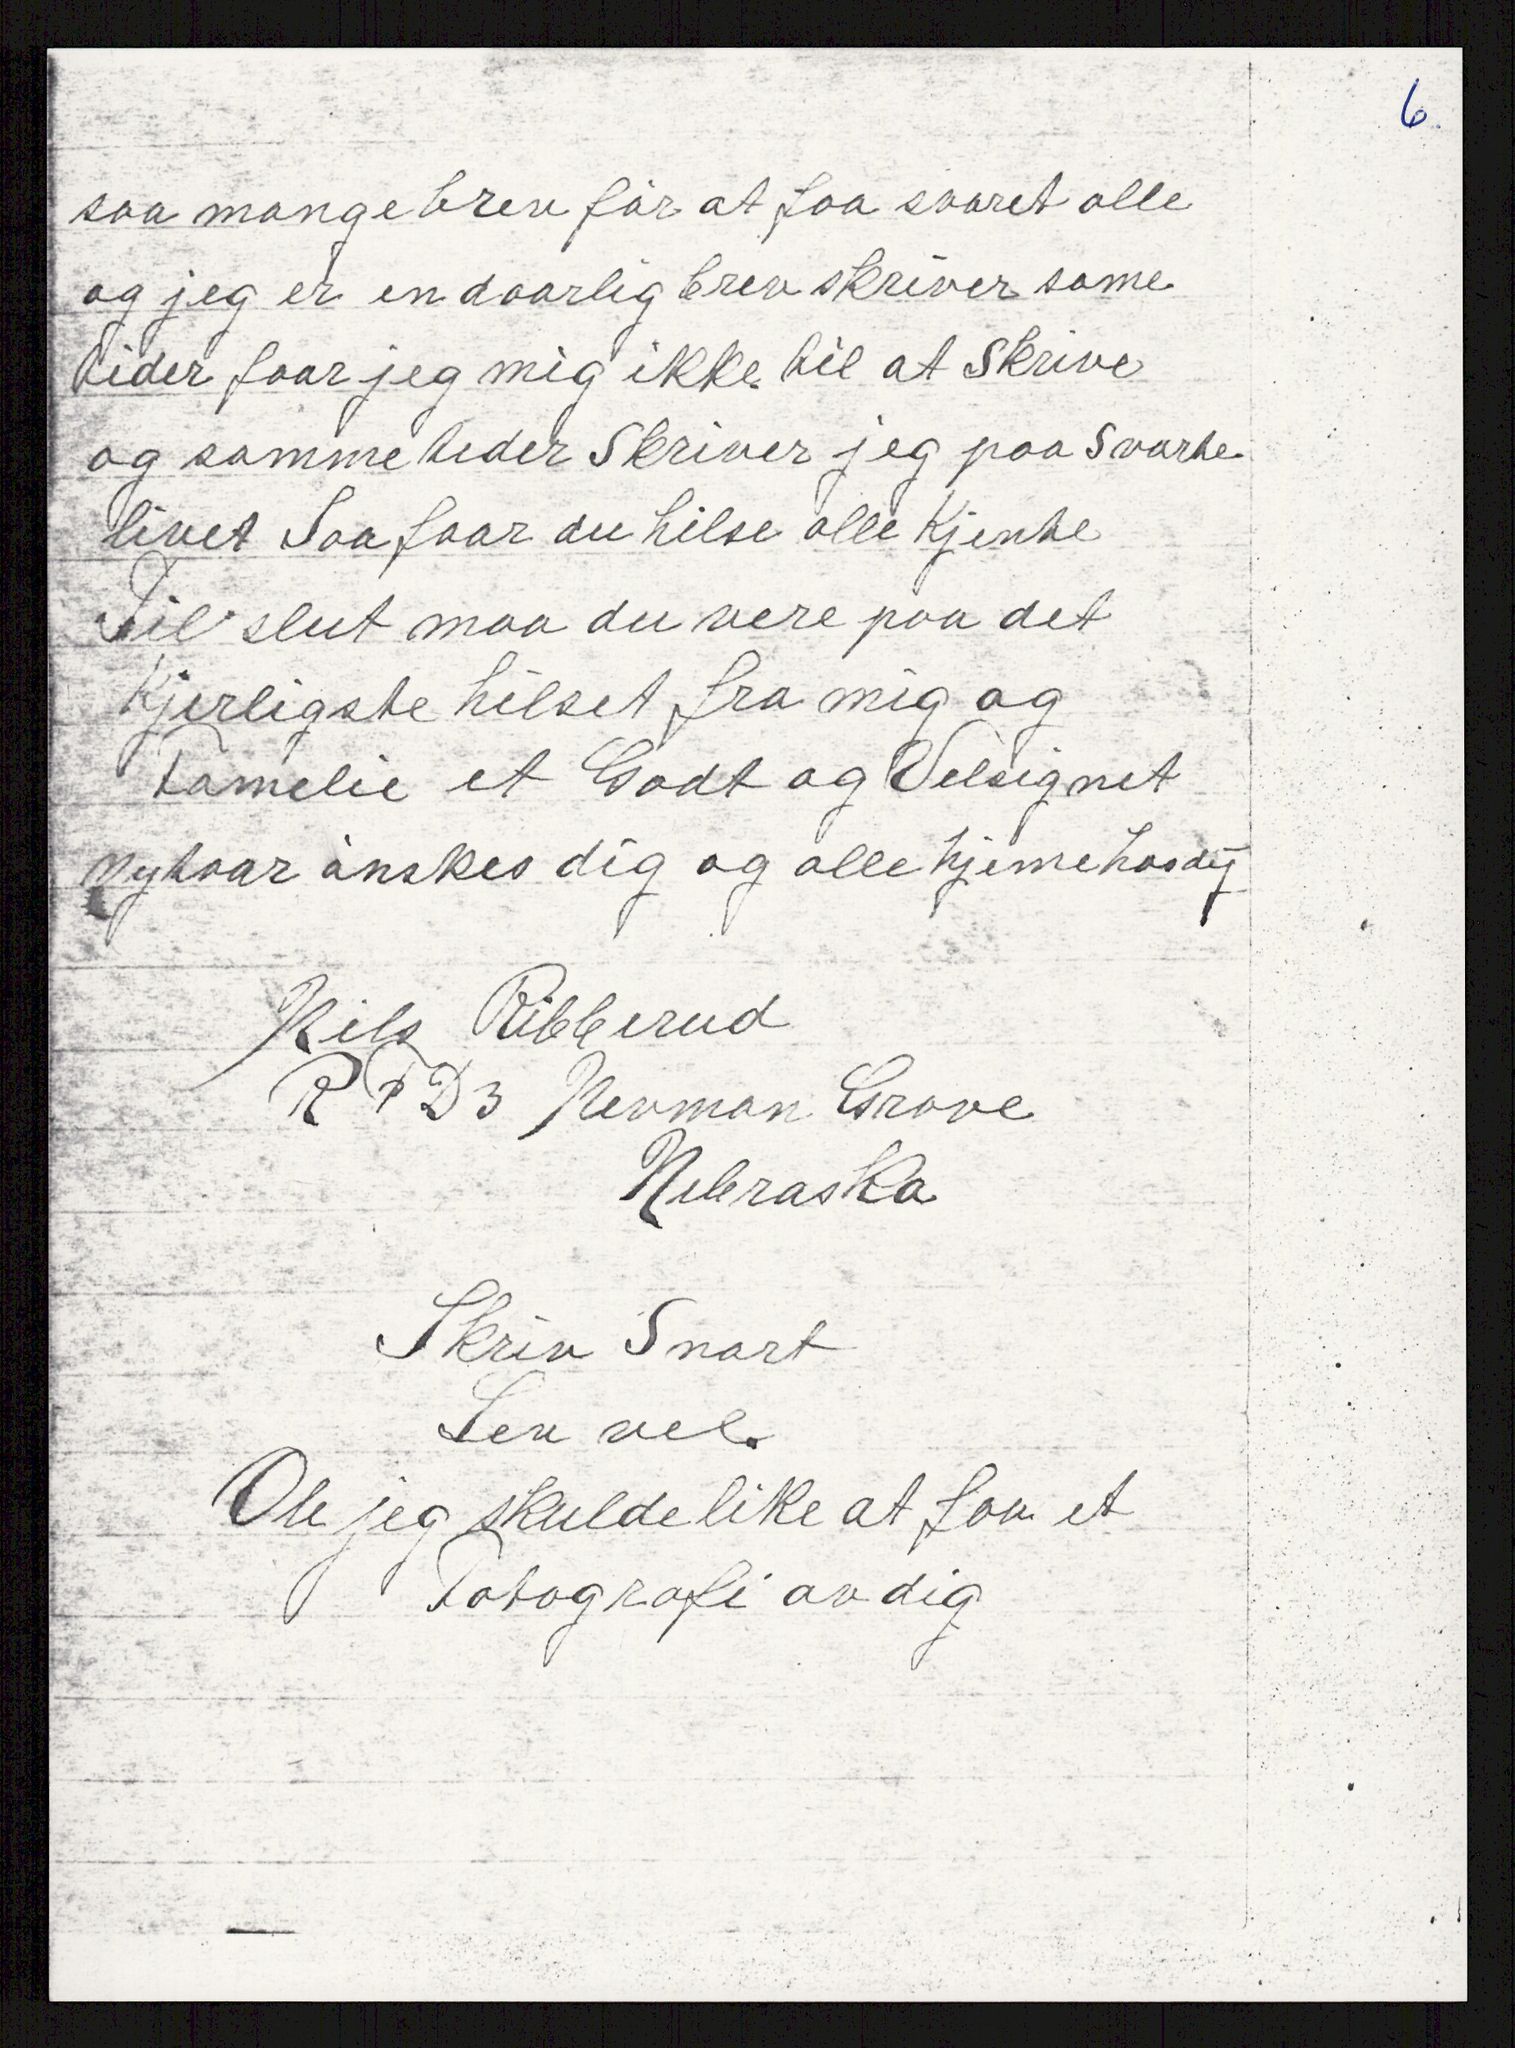 6
saa mange brev før at faa svaret alle
og jeg er en daarlig brev skriver same
tider faar jeg mig ikke til at Skrive
og samme tider Skriver jeg paa Svarte
livet Saa faar du hilse alle Kjente
Til slut maa du vere paa det
Kjerligste hilset fra mig og
Famelie et Godt og Velsignet
nytaar ønskes dig og alle hjeme hos dig
Nils Ribberud
R F D 3 Nevman Grove
Nebraska
Skriv Snart
Lev vel.
Ole jeg skulde like at faa et
Fotografi av dig